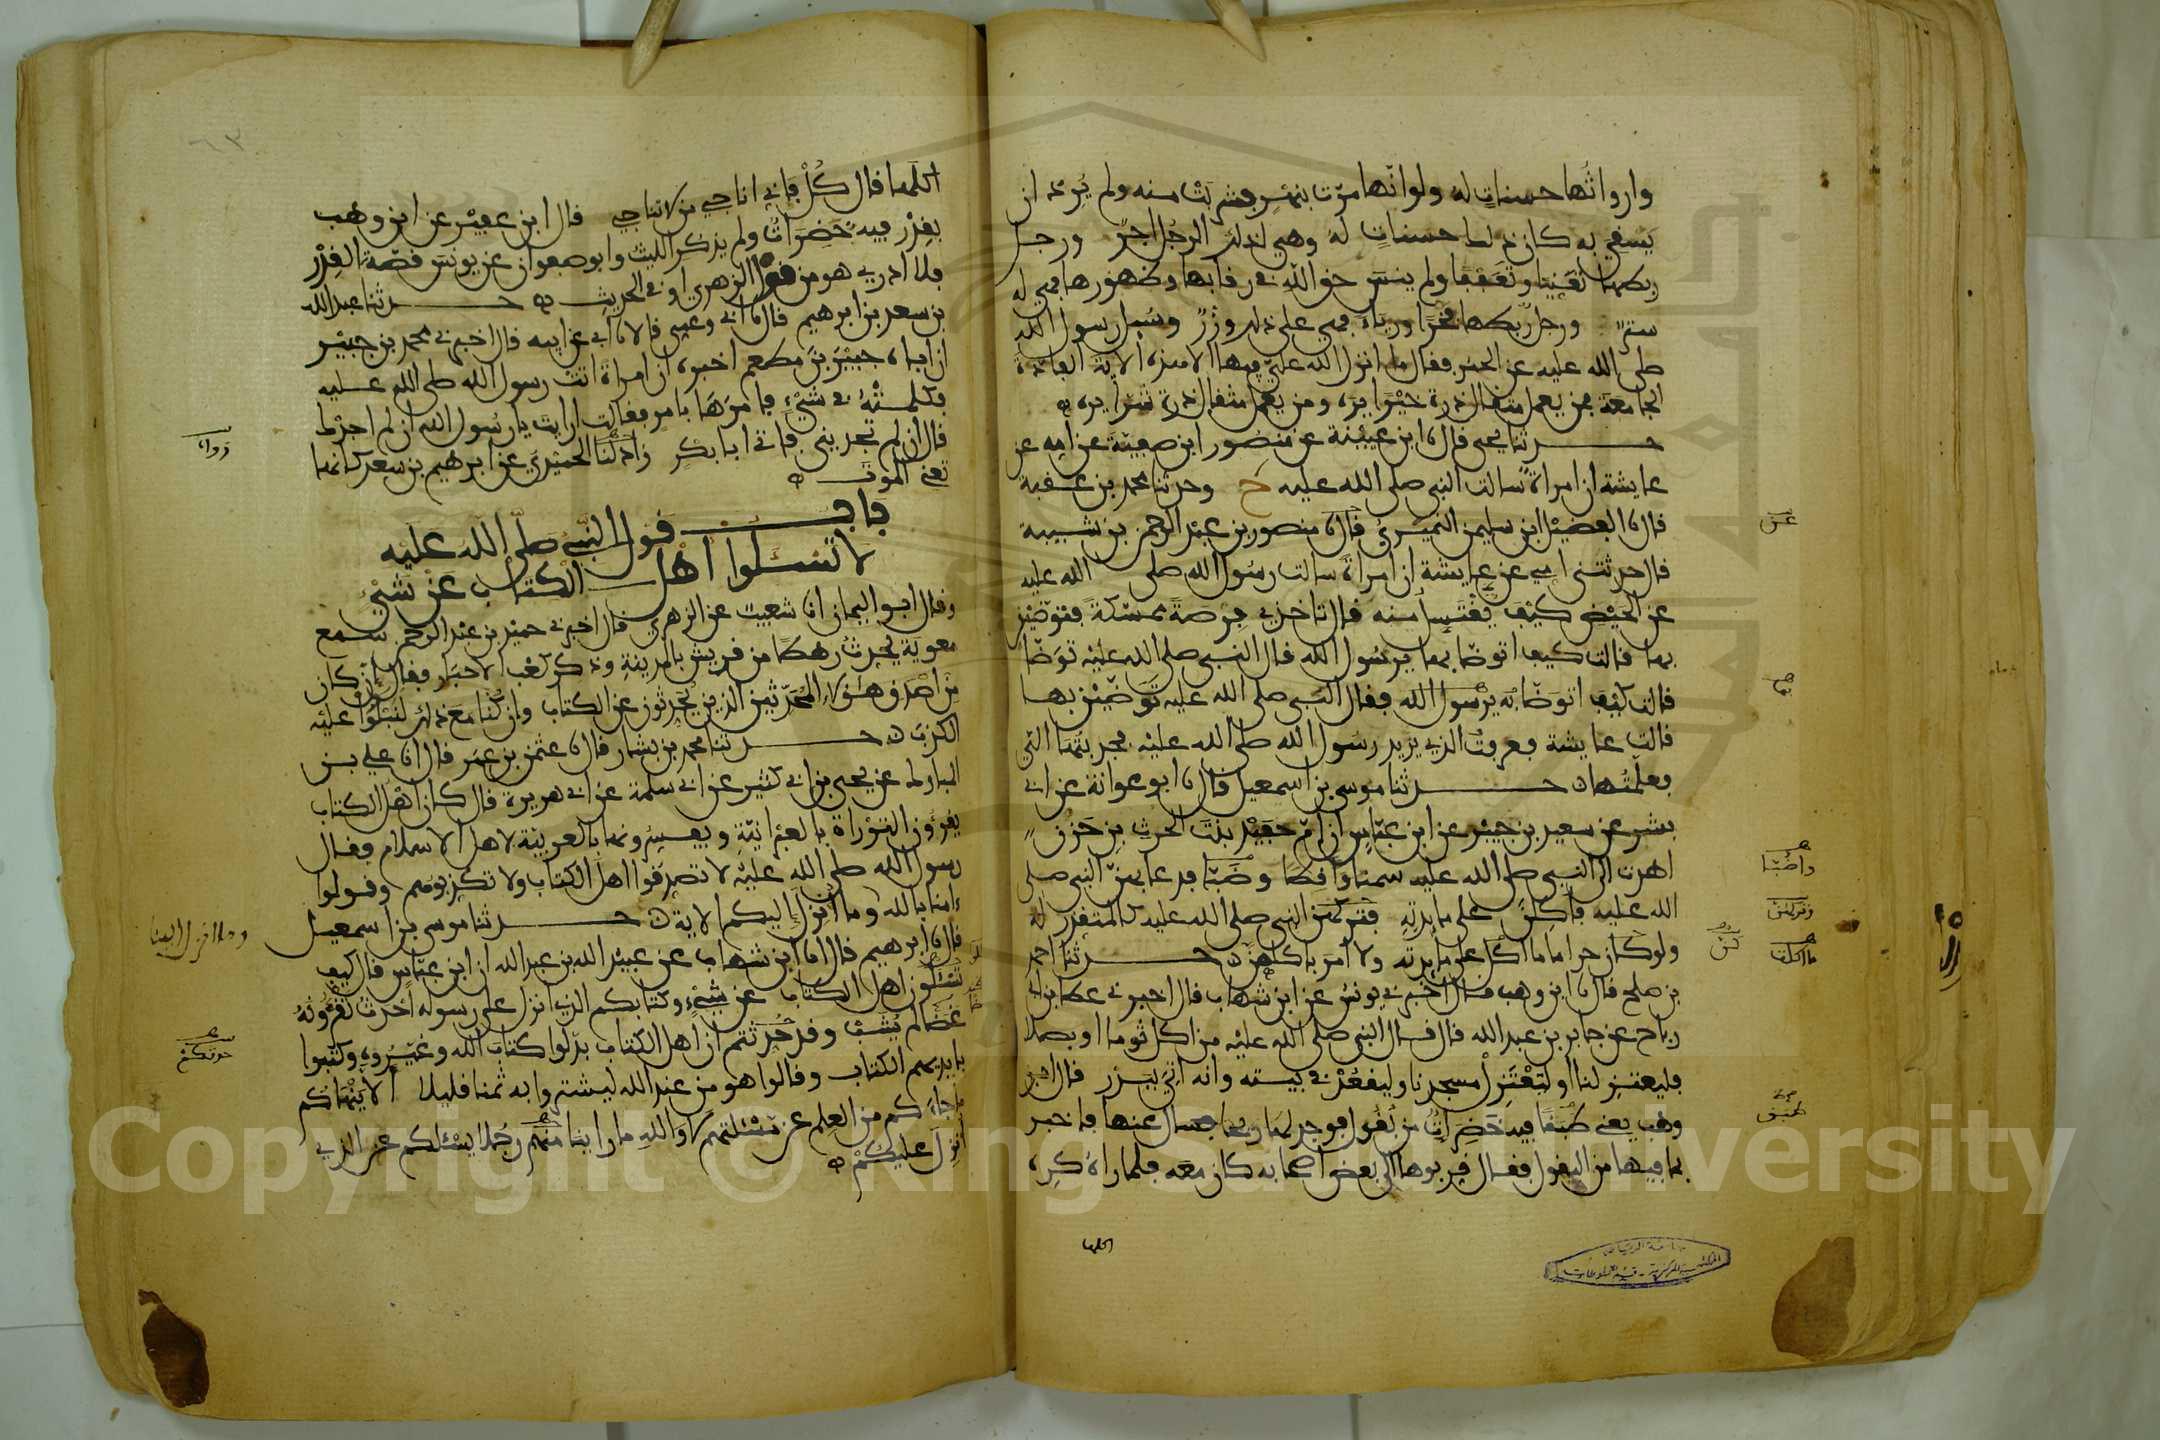 وارواثُها حسناتٍ له ولو انّها مرّت بنهرٍ فشربَتْ منه ولم يُرِد ان
يَسقي به كان ذلك حسناتٍ له وهي لذلك الرجُل اجرٌ ورجل
ربطها تغنيا وتعَفّفًا ولم ينسَ حق الله في رقابها ولا ظهورها فهي له
سترٌ ورجل ربطها فخرًا ورياءً فهي على ذلك وزرٌ وسُيل رسول الله
صلى الله عليه عن الحمُر فقال ما انزل الله عليّ فيها الا هذه الاية الفاذة
الجامعة فمن يعمل مثقال ذرة خيْرا يره ومن يعمل مثقال ذرة شرا يره
حدثنا يحيى قال نا ابن عيينة عن منصور ابن صفيّة عن امه عن
عايشة ان امراة سالت النبي صلى الله عليه ح وحدثنا محمد بن عقبة
قال نا الفضيْل ابن سليمن النميْريُ قال نا منصور بن عبْد الرحمن بن شيبة
قال حدثتني امي عن عايشة ان امراة سالت رسُول الله صلى الله عليه
عن الحيْض كيْفَ يغْتَسلُ منه قال تاخذي فِرصةً ممسّكةً فتوضّين
بها قالت كيف اتوضّا بها يرسُول الله قال النبي صلى الله عليْه توَضّا
قالت كيْفَ اتوَضّا به يرسُول الله فقال النبي صلى الله عليه توَضّئين بها
قالت عايشة فعرفتُ الذي يريد رسول الله صلى الله عليْه فجذبتُها اليّ
فعلّمتُها حدثنا موسى بن اسمعيل قال نا ابو عوانة عن ابي
بشر عن سعيد بن جبيْر عن ابن عبّاس ان امّ حفيْد بنْتَ الحرث بن حَزْنٍ
اهدت الى النبي صلى الله عليه سمنا واقِطا وضَبّا فدعا بهنّ النبي صلى
الله عليه فاكِلن على مايدتِه فتركهن النبي صلى الله عليه كالمتقذر له
ولو كان حراما ما اكل على مايدته ولا امر باكلهن حدثنا احمد
بن صلح قال نا ابن وهب قال اخبرني يونس عن ابن شهاب قال اخبرني عطا بن ابي
رباح عن جابر بن عبد الله قال قال النبي صلى الله عليْه من اكل ثوما او بصلا
فليعتزلنا او ليَعْتَزلْ مسجدنا وليقعُدْ في بيته وانه اتي ببدر قال ابن
وهب يعني طبَقًا فيه خَضِرَاتٌ من بُقُول فوجد لها ريحا فسال عنها فاخبر
بما فيها من البقول فقال قرّبوها الى بعض اصحابه كان معه فلما راه كره
اكلها
عن
بها
واضبّا
وتركهن
ما اكلن
طبق
جامعة الرياض
المكتبة المركزية - قسم المخطوطات
٦٣
اكلَها قال كُلْ فاني اناجي من لا تناجي قال ابن عفيْر عن ابن وهب
بقِدْرٍ فيه خَضِرَاتٌ ولم يذكر الليث وابو صفوان عن يونسَ قصّة القِدْر
فلا ادري هو من قول الزهري او في الحديث حدثنا عبد الله
بن سعد بن ابرهيم قال نا ابي وعمي قالا نا ابي عن ابيه قال اخبرني محمد بن جبيْر
ان اباه جبيْرَ بنَ مطعم اخبره ان امراة اتت رسول الله صلى الله عليه
فكلمتْهُ في شيْءٍ فامرَهَا بامر فقالت ارايت يا رسُول الله ان لم اجدْك
قال ان لم تجديني فاتي ابا بكر زاد لنا الحميْدي عن ابرهيم بن سعد كانها
تعني الموت
باب قول النبي صلى الله عليه
لا تَسْئَلوا أهْل الكتاب عَنْ شَيْءٍ
وقال ابو اليمان انا شعيبٌ عن الزهري قال اخبرني حميْد بن عبْد الرحمن سمع
معوية يحدثُ رهطًا من قريش بالمدينة وذكر كعْبَ الاحبار فقال ان كان
من اصْدق هؤلاء المُحَدّثين الذين يحدثون عن الكتاب وان كُنّا معَ ذلك لنبلُوا عليْه
الكذب حدثنا محمد بن بشار قال نا عثمن بن عمر قال انا علي بن
المبارك عن يحيى بن ابي كثير عن ابي سلمة عن ابي هريرة قال كان اهْل الكتاب
يقرءون التوْراة بالعبْرانيّة ويفسرُونها بالعربيّة لاهل الاسلام فقال
رسول الله صلى الله عليْه لا تصدقوا اهل الكتاب ولا تكذبوهم وقولوا
ءامنا بالله وما أنزل إليكم الاية حدثنا موسى بن اسمعيل
قال نا ابرهيم قال انا ابن شهاب عن عبيْد الله بن عبد الله ان ابن عبّاسٍ قال كيف
تَسْئَلون اهل الكتاب عن شيْءٍ وكتابكم الذي انزل على رسوله احدثُ تقرءُونهُ
غضّا لم يُشَبْ وقد حُدّثتم ان اهل الكتاب بدّلوا كتاب الله وغيّرُوه وكتبوا
بايديهم الكتاب وقالوا هو من عند الله ليشتروا به ثمنا قليلا ألا يَنْهاكم
ما جاءَكم من العلم عن مسْئلتهم لا والله ما راينا منهم رجُلا يسئلكم عن الذي
انْزِلَ عليْكُمْ
زواه
وما انزل اليكم
حدثكم
Copyright © King Saud University